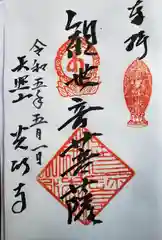 奉拝
観世音菩薩
令和五年五月一日
長照山
光明寺